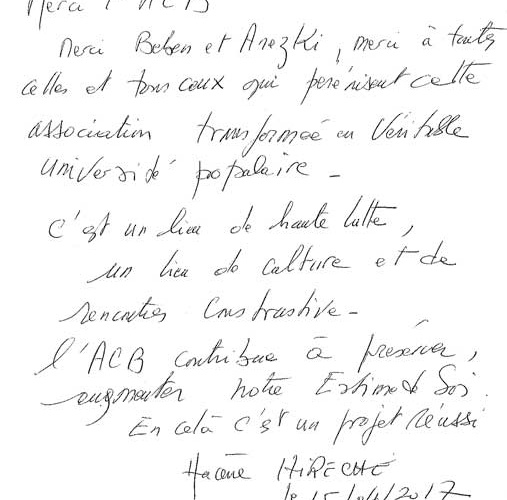 Merci l'ACB
Merci Beben et Arezki, merci à toutes
celles et tous ceux qui pérénisent cette
association transformée en Véritable
Université populaire -
C'est un lieu de haute lutte,
un lieu de culture et de
rencontres Constructive -
l'ACB contribue à préserver,
augmenter notre Estime de Soi.
En celà c'est un projet Réussi
Hacène HIRECHE
le 15/04/2017